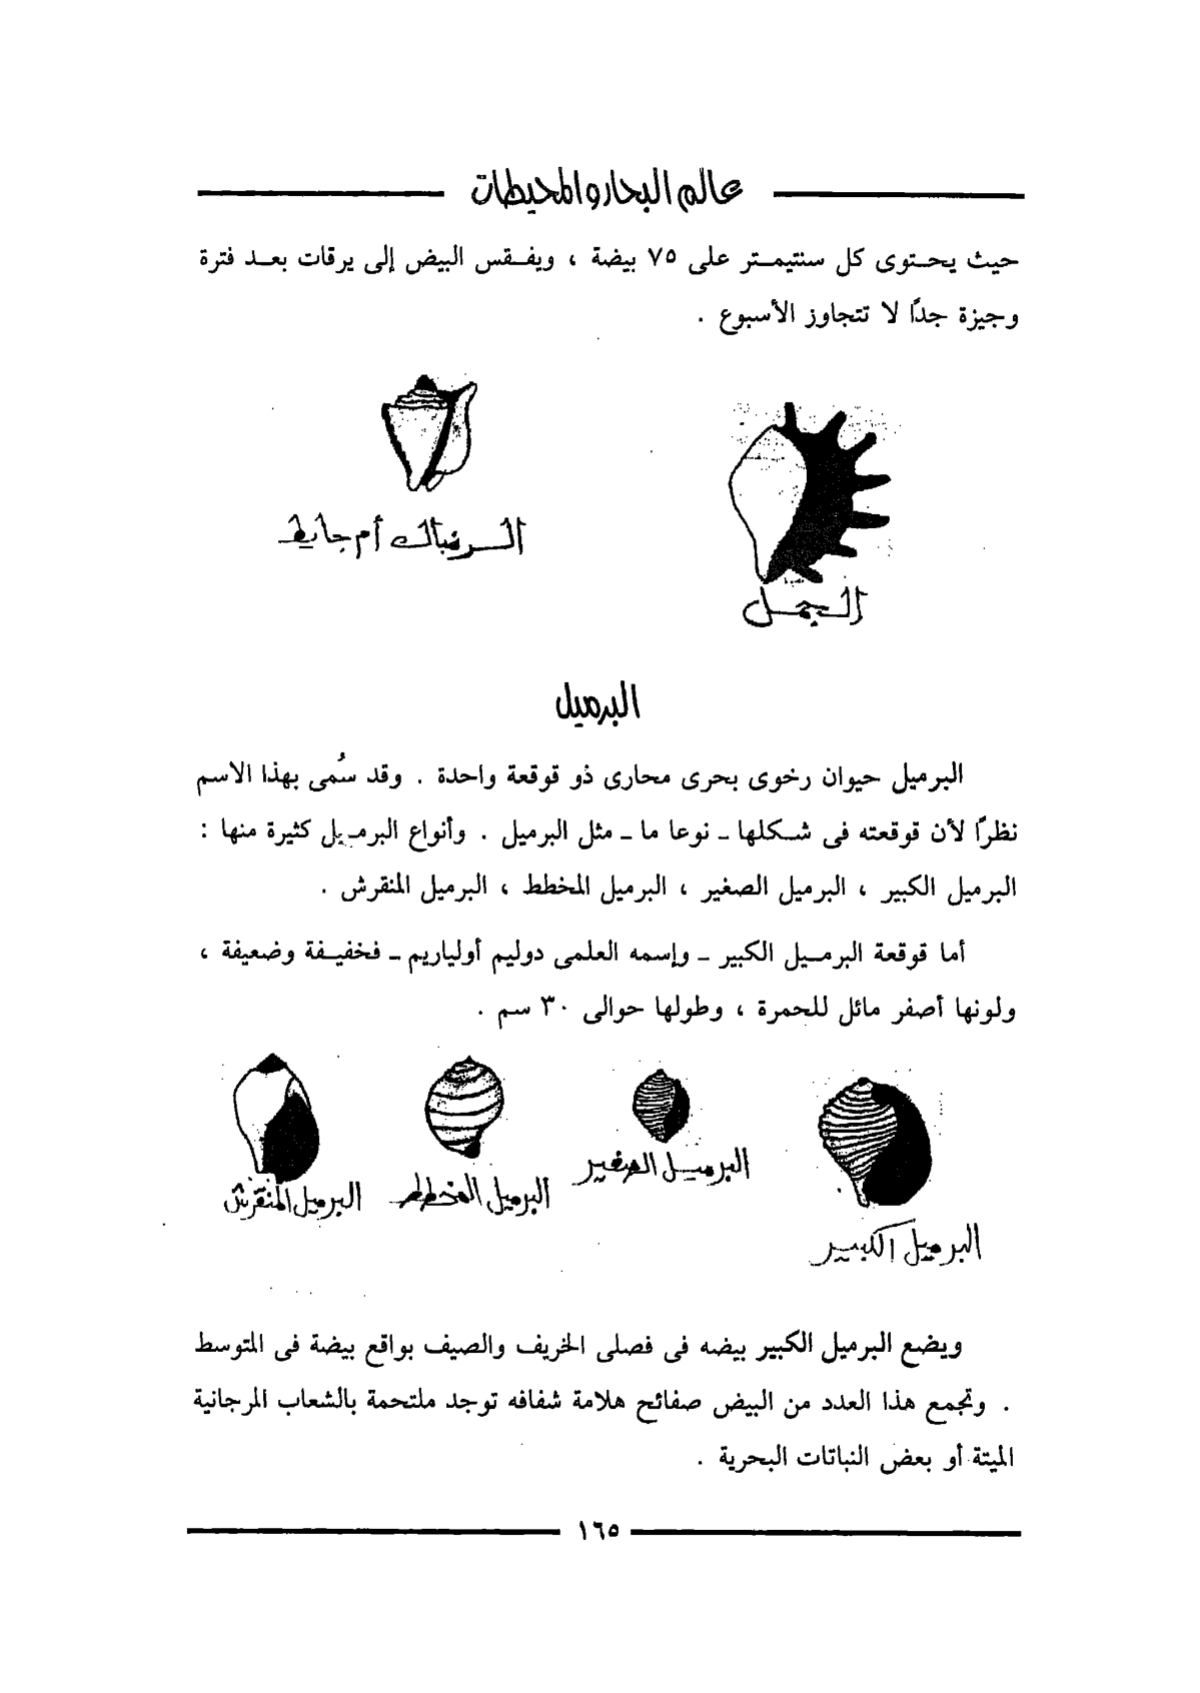 عالم البحار والمحيطات
حيث يحتوى كل سنتيمتر على ٧٥ بيضة ، ويفقس البيض إلى يرقات بعد فترة
وجيزة جدًا لا تتجاوز الأسبوع .
السرنباك أم جايط
الجمل
البرميل
البرميل حيوان رخوى بحرى محارى ذو قوقعة واحدة . وقد سُمى بهذا الاسم
نظرًا لأن قوقعته فى شكلها ـ نوعا ما ـ مثل البرميل . وأنواع البرميل كثيرة منها :
البرميل الكبير ، البرميل الصغير ، البرميل المخطط ، البرميل المنقرش .
أما قوقعة البرميل الكبير ـ وإسمه العلمى دوليم أولياريم ـ فخفيفة وضعيفة ،
ولونها أصفر مائل للحمرة ، وطولها حوالى ٣٠ سم .
البرميل الكبير
البرميل الصغير
البرميل المخطط
البرميل المنقرش
ويضع البرميل الكبير بيضه فى فصلى الخريف والصيف بواقع بيضة فى المتوسط
. وتجمع هذا العدد من البيض صفائح هلامة شفافه توجد ملتحمة بالشعاب المرجانية
الميتة أو بعض النباتات البحرية .
١٦٥